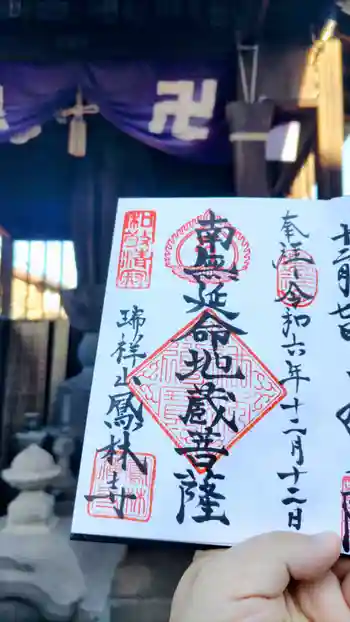 奉拝
令和六年十二月十二日
南無延命地蔵菩薩
瑞祥山鳳林寺
和敬清寂